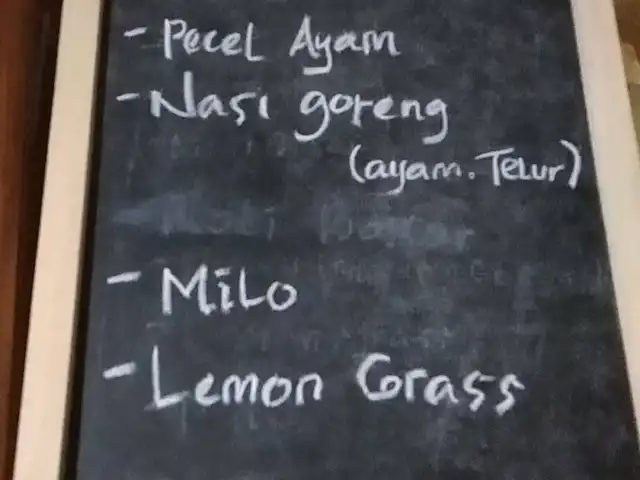 - Pecel Ayam
- Nasi goreng
(ayam. Telur)
- Milo
- Lemon Grass